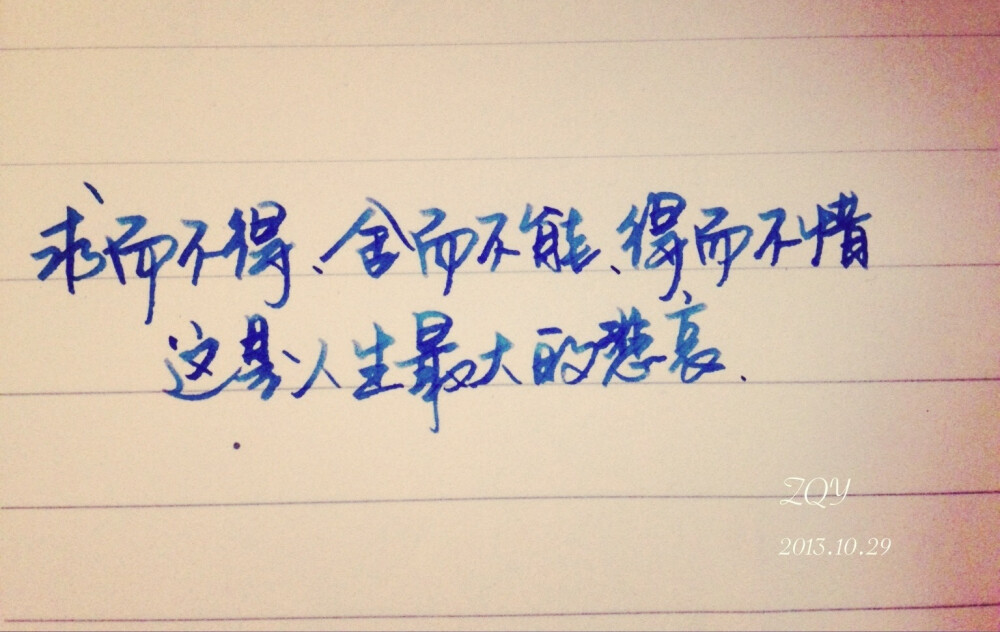 求而不得、舍而不能、得而不惜
这是人生最大的悲哀.
ZQY
2013.10.29